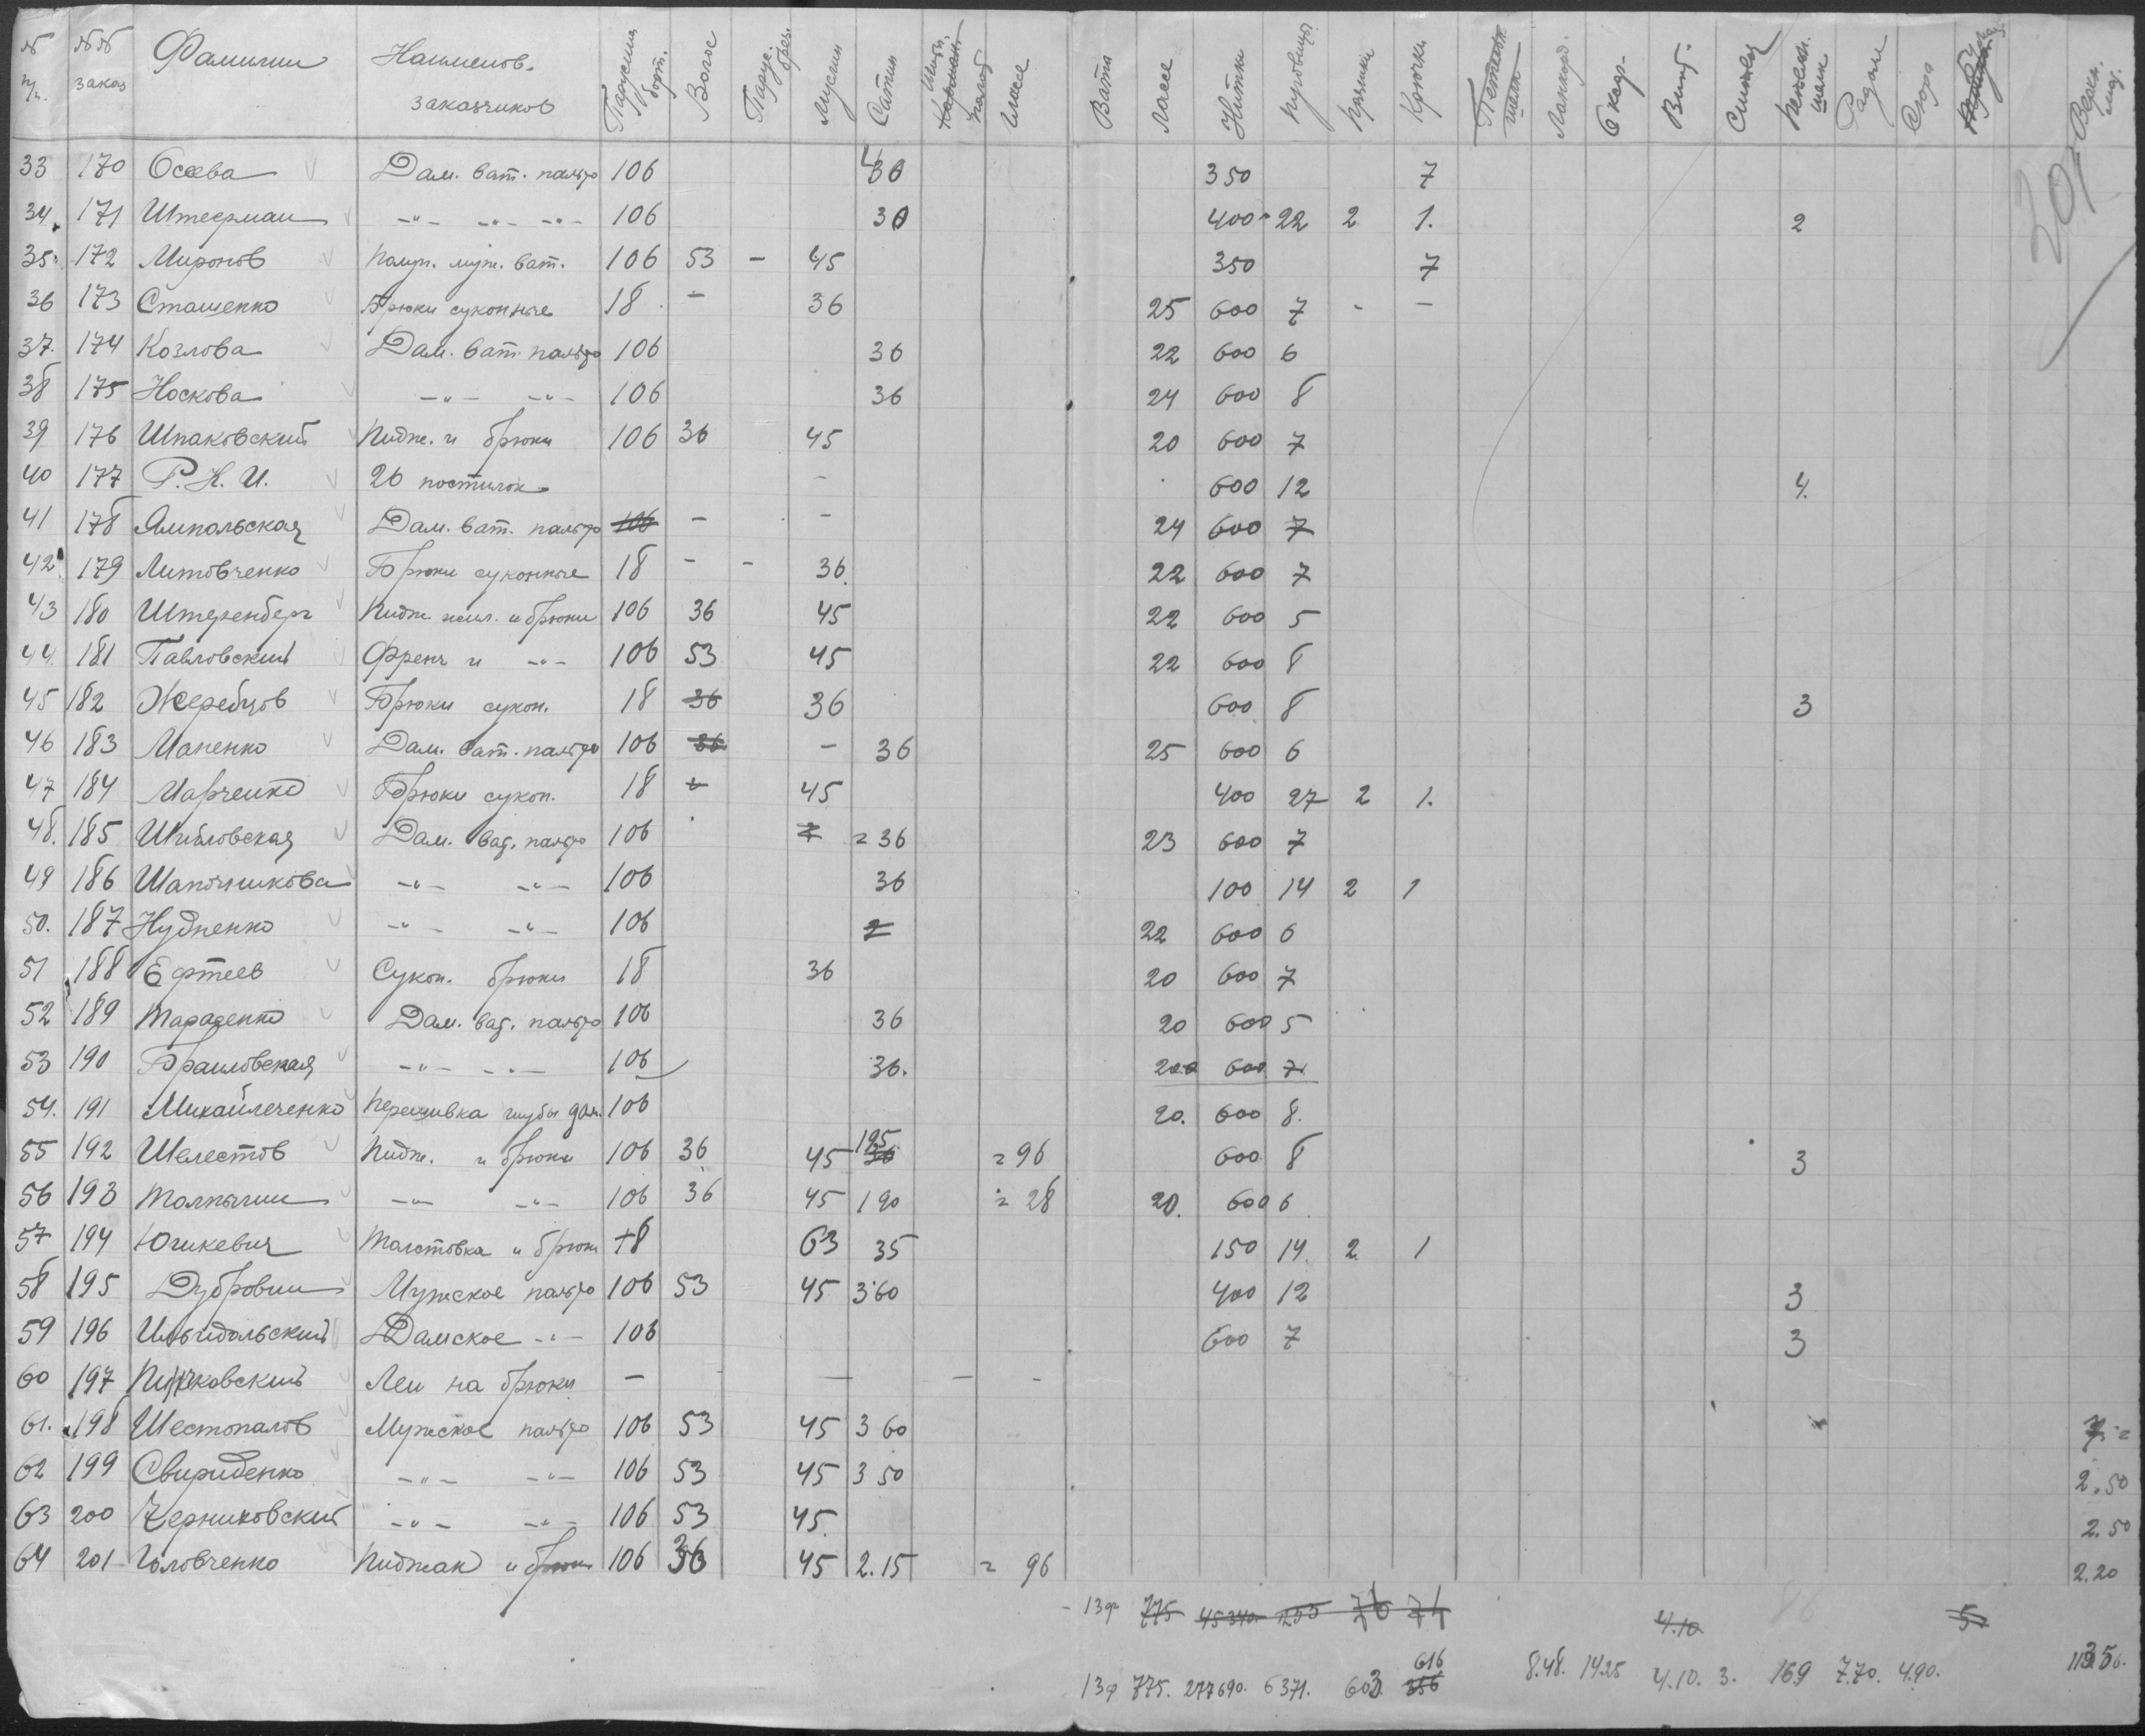 № п/п. №№ заказ Фамилии Наименов. заказчиков Парусина борт. Волос Парус. Муслин Сатин Гласе Вата Ласе Нитки Пуговицы Пряжки Крючки Радом Верхн.
33 170 Осаева Дам. ват. пальто 106 350 7
34. 171 Штеерман -"- -"- -"- 106 30 400 22 2 1. 2
35. 172 Миронов муж. ват. 106 53 - 45 350 7
36 173 Сташенко Брюки суконные 18 - 36 25 600 7 - -
37. 174 Козлова Дам. ват. пальто 106 36 22 600 6
38 175 Носкова -"- -"- 106 36 24 600 8
39 176 Шпаковский Пидж. и брюки 106 36 45 20 600 7
40 177 Р. К. И. 26 постилок - 600 12 4.
41 178 Ямпольская Дам. ват. пальто 106 - - 24 600 7
42. 179 Литовченко Брюки суконные 18 - - 36. 22 600 7
43 180 Штеренберг Пидж. жил. и брюки 106 36 45 22 600 5
44. 181 Павловский Френч и -"- 106 53 45 22 600 8
45 182 Жеребцов Брюки сукон. 18 36 36 600 8 3
46 183 Маненко Дам. ват. пальто 106 36 - 36 25 600 6
47 184 Марченко Брюки сукон. 18 45 400 27 2 1.
48. 185 Шибловская Дам. ват. пальто 106 = 36 23 600 7
49 186 Шапочникова -"- -"- 106 36 100 14 2 1
50. 187 Нудненко -"- -"- 106 22 600 6
51 188 Ефтеев Сукон. брюки 18 36 20 600 7
52 189 Тараденко Дам. ват. пальто 106 36 20 600 5
53 190 Браиловская -"- -"- 106 36. 600 7.
54. 191 Михайлеченко Перешивка шубы дам. 106 20. 600 8.
55 192 Шелестов Пидж. и брюки 106 36 45 195 36 = 96 600 8 3
56 193 Толпыгин -"- -"- 106 36 45 190 = 28 20. 600 6
57 194 Юшкевич Толстовка и брюки 18 63 35 150 14. 2 1
58 195 Дубровин Мужское пальто 106 53 45 3.60 400 12 3
59 196 Дамское -"- 106 600 7 3
60 197 Леи на брюки - - - -
61. 198 Шестопалов Мужское пальто 106 53 45 3 60
62 199 Свириденко -"- -"- 106 53 45 3 50 2.50
63 200 Черниховский -"- -"- 106 53 45. 2.50
64 201 Головченко Пиджак и брюки 106 36 45 2.15 = 96 2.20
- 13ф 775 45340 76 74 4.10 5
13ф 775. 277690. 6371. 603. 616 356 8.48. 14.25 4.10. 3. 169 7.70. 4.90.
201